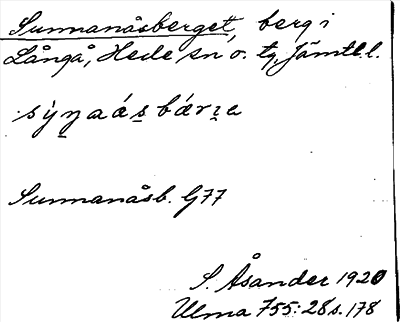 Sunnanåsberget, berg i
Långå, Hede sn o. tg, Jämtl.l.
Sunnanåsb. G77
S. Åsander 1920
Ulma 755:28 s. 178